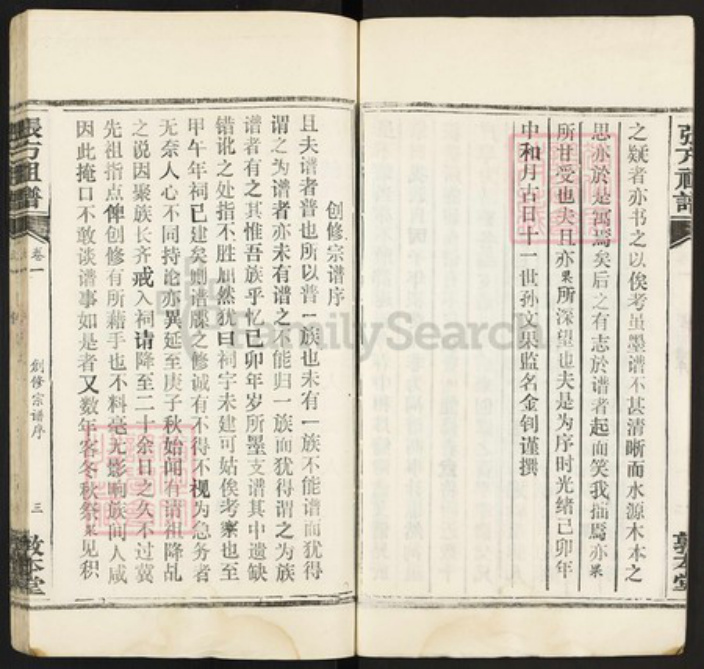 之疑者亦书之以俟考虽墨谱不甚清晰而水源木本之
思亦於是寓焉矣后之有志於谱者起而笑我拙焉亦果
所甘受也夫且亦果所深望也夫是为序时光绪己卯年
中和月古日十一世孙文果监名金钊谨撰
创修宗谱序
且夫谱者普也所以普一族也未有一族不能谱而犹得
谓之为谱者亦未有谱之不能归一族而犹得谓之为族
谱者有之其惟吾族乎忆己卯年岁所墨支谱其中遗缺
错讹之处指不胜屈然犹曰祠宇未建可姑俟考察也至
甲午年祠已建矣则谱牒之修诚有不得不视为急务者
无奈人心不同持论亦異延至庚子秋始闻有请祖降乩
之说因聚族长齐戒入祠请降至二十余日之久不过冀
先祖指点俾创修有所藉手也不料毫无影响族间人咸
因此掩口不敢谈谱事如是者又数年客冬秋祭果见积
張方祖譜
卷一
創修宗谱序
三
敦本堂
FamilySearch